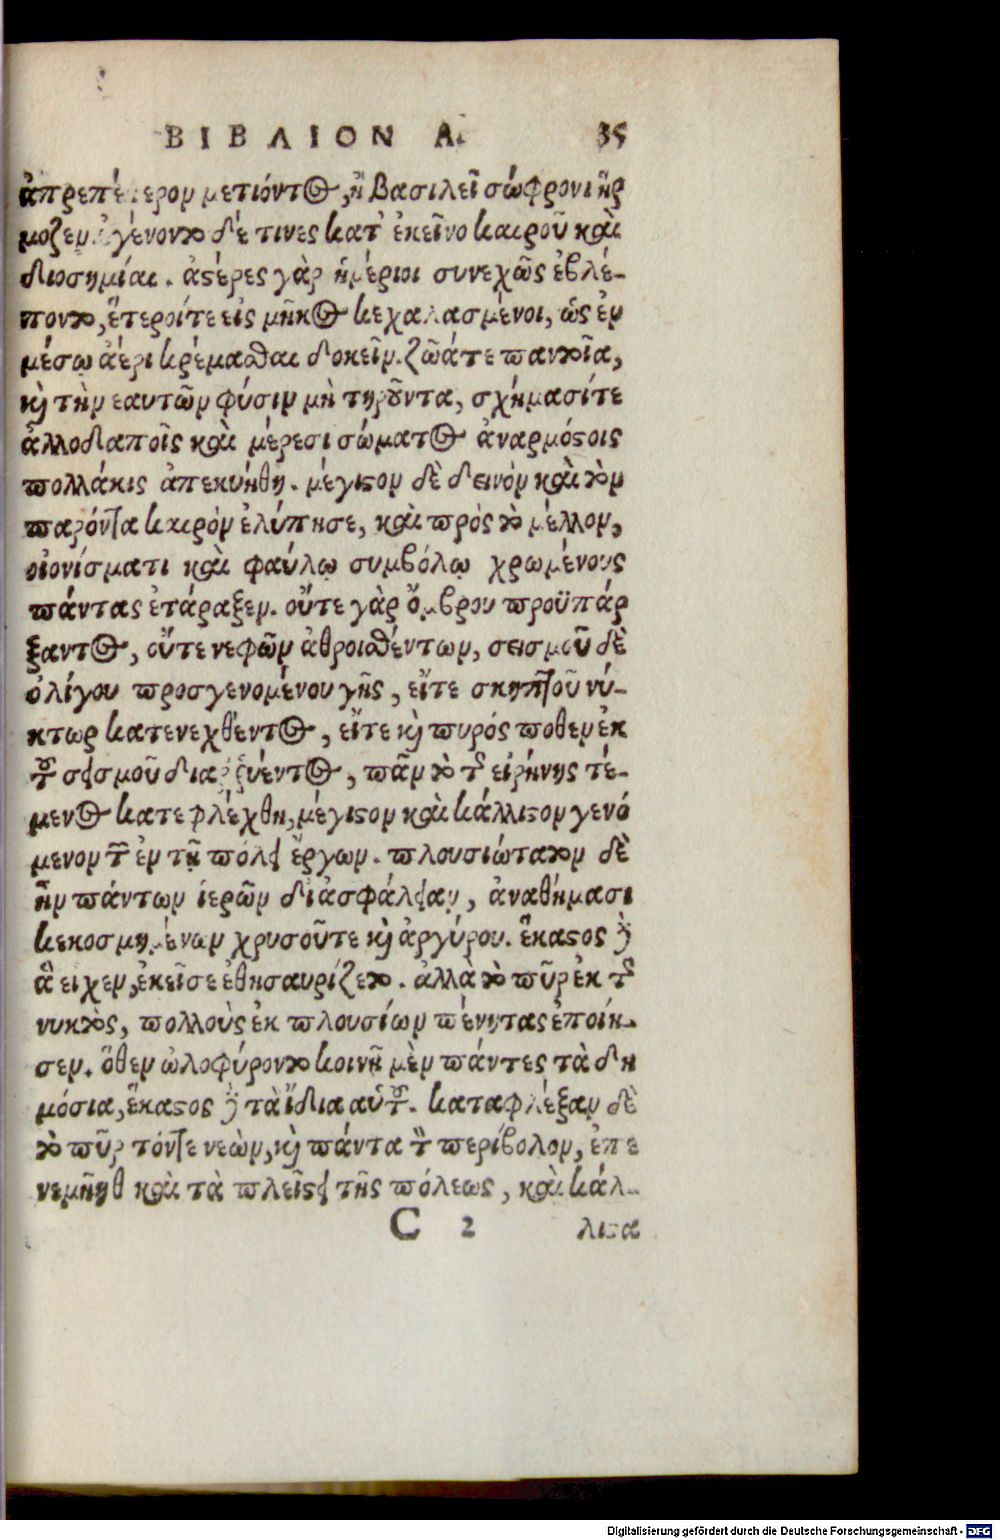 ΒΙΒΛΙΟΝ Α. 35
ἀπρεπέστερον μετιόντος, ἢ βασιλεῖ σώφρονι ἥρ
μοζεν. ἐγένοντο δέ τινες κατ' ἐκεῖνο καιροῦ καὶ
διοσημίαι. ἀστέρες γὰρ ἡμέριοι συνεχῶς ἐβλέ-
ποντο, ἕτεροίτε εἰς μῆκος κεχαλασμένοι, ὡς ἐν
μέσῳ ἀέρι κρέμασθαι δοκεῖν. ζῶάτε παντοῖα,
κὶ τὴν εαυτῶν φύσιν μὴ τηροῦντα, σχήμασίτε
ἀλλοδαποῖς καὶ μέρεσι σώματος ἀναρμόστοις
πολλάκις ἀπεκυήθη. μέγιστον δὲ δεινὸν καὶ τὸν
παρόντα καιρὸν ἐλύπησε, καὶ πρὸς τὸ μέλλον,
οἰονίσματι καὶ φαύλῳ συμβόλῳ χρωμένους
πάντας ἐτάραξεν. οὔτε γὰρ ὄμβρου προϋπάρ
ξαντος, οὔτε νεφῶν ἀθροισθέντων, σεισμοῦ δὲ
ὀλίγου προσγενομένου γῆς, εἴτε σκηπτοῦ νύ-
κτωρ κατενεχθέντος, εἴτε κὶ πυρός ποθεν ἐκ
τοῦ σεισμοῦ διαρρυέντος, πᾶν τὸ τῆς εἰρήνης τέ-
μενος κατεφλέχθη, μέγιστον καὶ κάλλιστον γενό
μενον τῶν ἐν τῇ πόλει ἔργων. πλουσιώτατον δὲ
ἦν πάντων ἱερῶν δι ἀσφάλειαν, ἀναθήμασι
κεκοσμημένων χρυσοῦτε κὶ ἀργύρου. ἕκαστος δὲ
ἃ εἶχεν, ἐκεῖσε ἐθησαυρίζετο. ἀλλὰ τὸ πῦρ ἐκ τῆς
νυκτὸς, πολλοὺς ἐκ πλουσίων πένητας ἐποίη-
σεν. ὅθεν ὠλοφύροντο κοινῇ μὲν πάντες τὰ δη
μόσια, ἕκαστος δὲ τὰ ἴδια αὑτοῦ. καταφλέξαν δὲ
τὸ πῦρ τόντε νεὼν, κὶ πάντα τὸν περίβολον, ἐπε
νεμήθη καὶ τὰ πλεῖστα τῆς πόλεως, καὶ κάλ-
C 2 λιστα
Digitalisierung gefördert durch die Deutsche Forschungsgemeinschaft - DFG